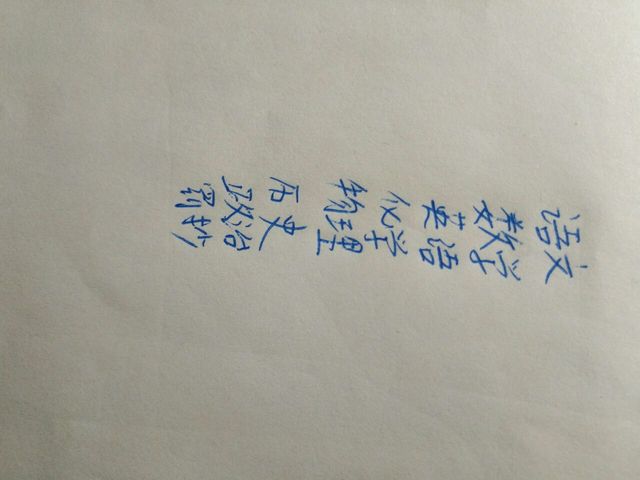 语文
数学
英语
化学
物理
历史
政治
罚抄